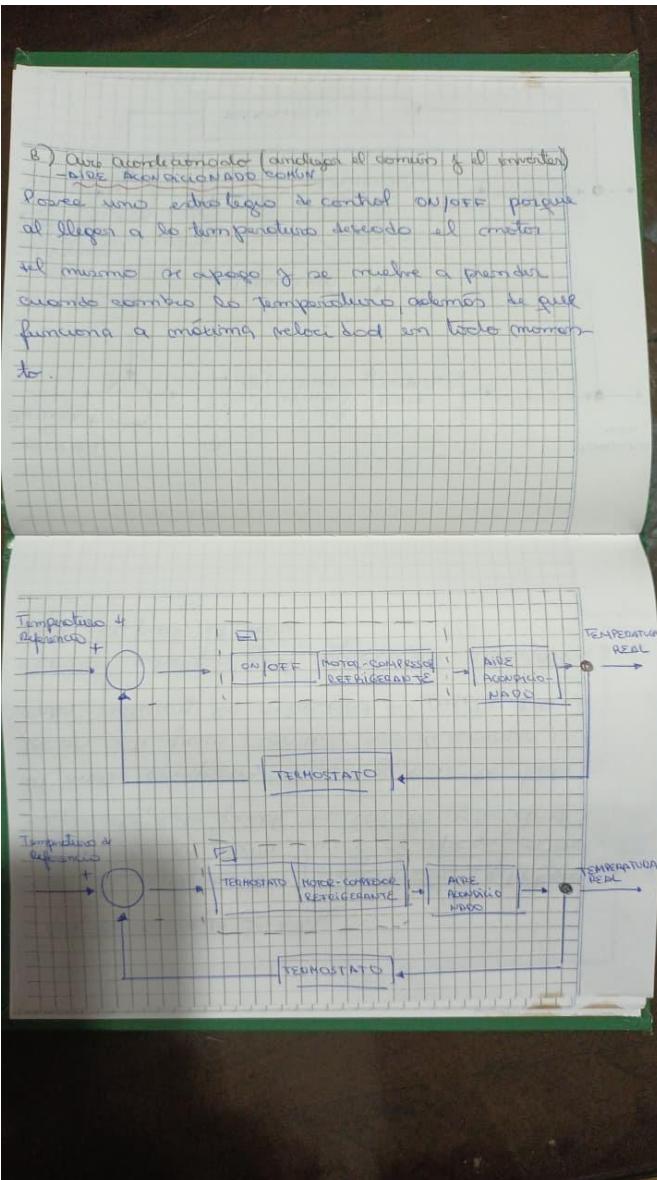 B) Aire acondicionado (analizar el común y el inverter)
- AIRE ACONDICIONADO COMÚN
Posee una estrategia de control ON/OFF porque
al llegar a la temperatura deseada el motor
del mismo se apaga y se vuelve a prender
cuando cambia la temperatura, además de que
funciona a máxima velocidad en todo momen-
to.
Temperatura de
Referencia
+
ON/OFF
MOTOR-COMPRESOR
REFRIGERANTE
AIRE
ACONDICIO-
NADO
TEMPERATURA
REAL
-
TERMOSTATO
Temperatura de
Referencia
+
TERMOSTATO
MOTOR-COMPRESOR
REFRIGERANTE
AIRE
ACONDICIO
NADO
TEMPERATURA
REAL
TERMOSTATO